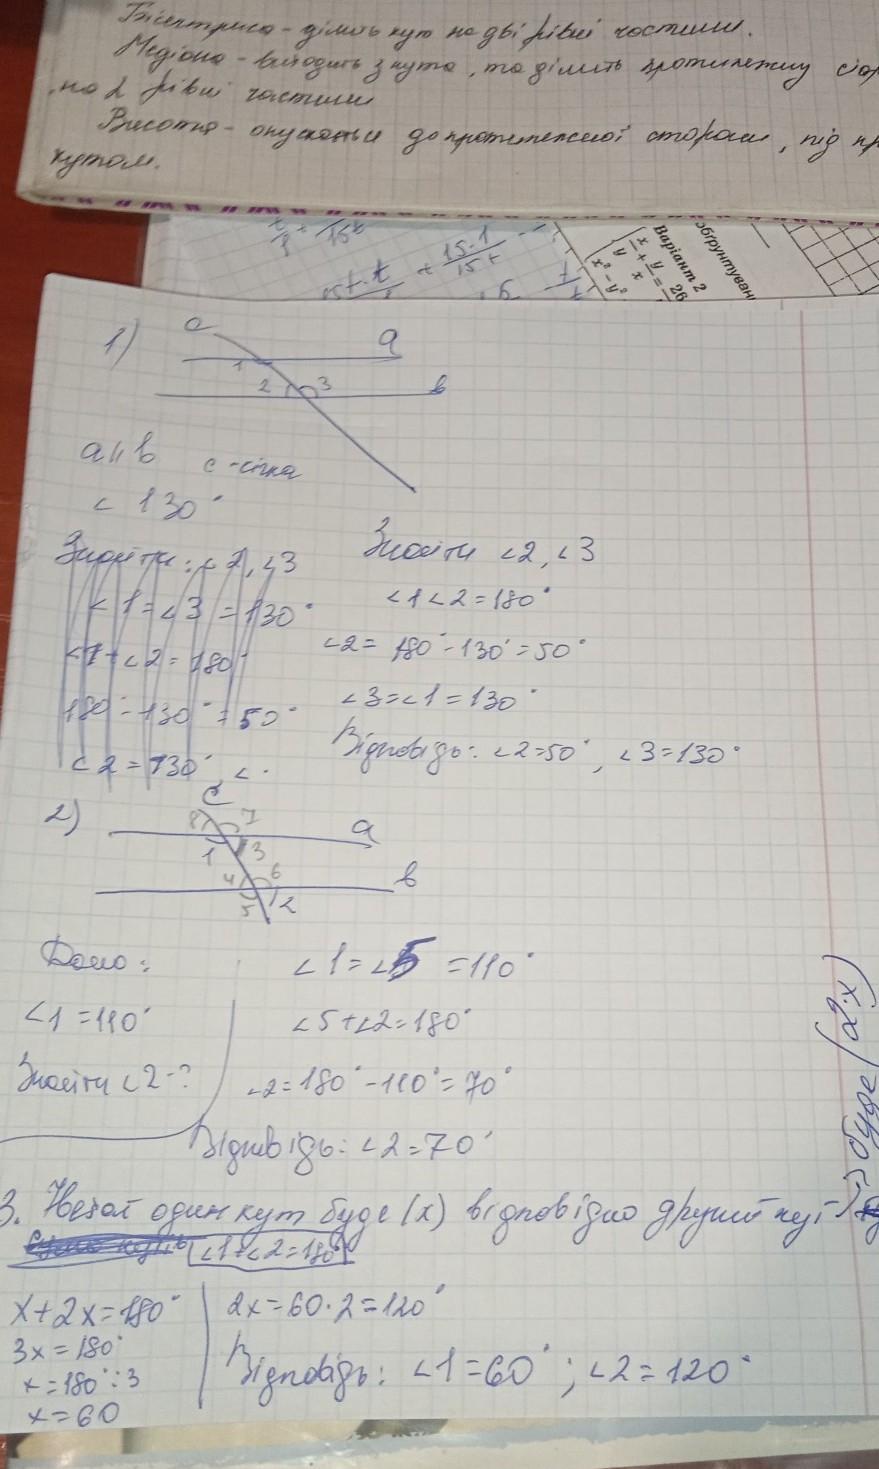 Бісектриса - ділить кут на дві рівні частини.
Медіана - виходить з кута, та ділить протилежну стор
на 2 рівні частини
Висота - опускається до протилежної сторони, під пр
кутом.
15·1
15t
Варіант 2
x/y + y/x = 26
x² - y²
обґрунтуван
1) c a
1
2 3 b
a || b c - січна
< 130°
Знайти: <2, <3
<1 = <3 = 130°
<1 + <2 = 180°
180° - 130° = 50°
<2 = 130°, <.
Знайти <2, <3
<1 <2 = 180°
<2 = 180° - 130° = 50°
<3 = <1 = 130°
Відповідь: <2 = 50°, <3 = 130°
2) c
8 7 a
1 3
4 6 b
5 2
Дано:
<1 = 110°
Знайти <2 - ?
<1 = <5 = 110°
<5 + <2 = 180°
<2 = 180° - 110° = 70°
Відповідь: <2 = 70°
3. Нехай один кут буде (x) відповідно другий кут
буде (2·x)
<1 + <2 = 180°
x + 2x = 180°
3x = 180°
x = 180° : 3
x = 60
2x = 60 · 2 = 120°
Відповідь: <1 = 60°; <2 = 120°